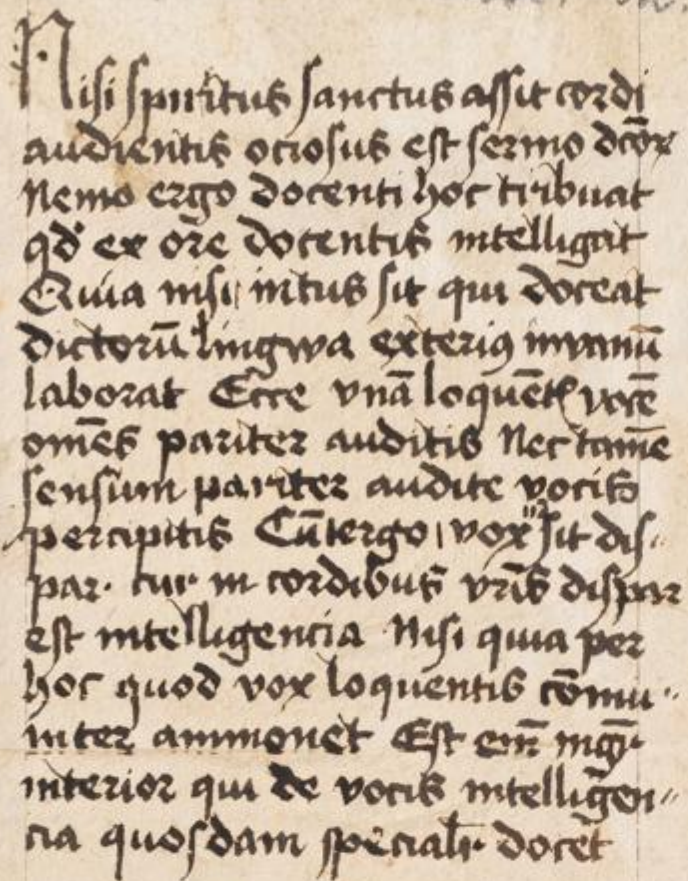 Nisi spiritus sanctus assit cordi
audientis ociosus est sermo dc̄oꝝ
Nemo ergo docenti hoc tribuat
qd̓ ex or̄e docentis intelligit
Quia nisi intus sit qui doceat
dictorū lingwa exteriꝯ invanū
laborat Ecce vnā loquent̄ vocē
om̄es pariter auditis Nec tamē
sensum pariter audite vocis
percipitis Cū ergo vox sit dis-
par. cur in cordibus vr̄is dispar
est intelligencia Nisi quia per
hoc quod vox loquentis com̄u-
niter ammonet Est eīm mgr̄
interior qui de vocis intelligen-
cia quosdam specialr̄ docet